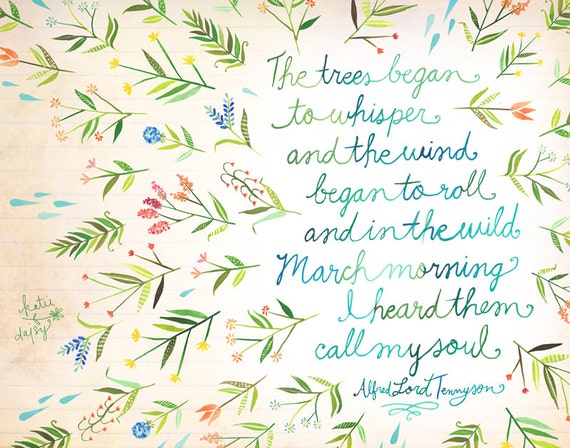 The trees began
to whisper
and the wind
began to roll
and in the wild
March morning
I heard them
call my soul
Alfred Lord Tennyson
katie
daisy